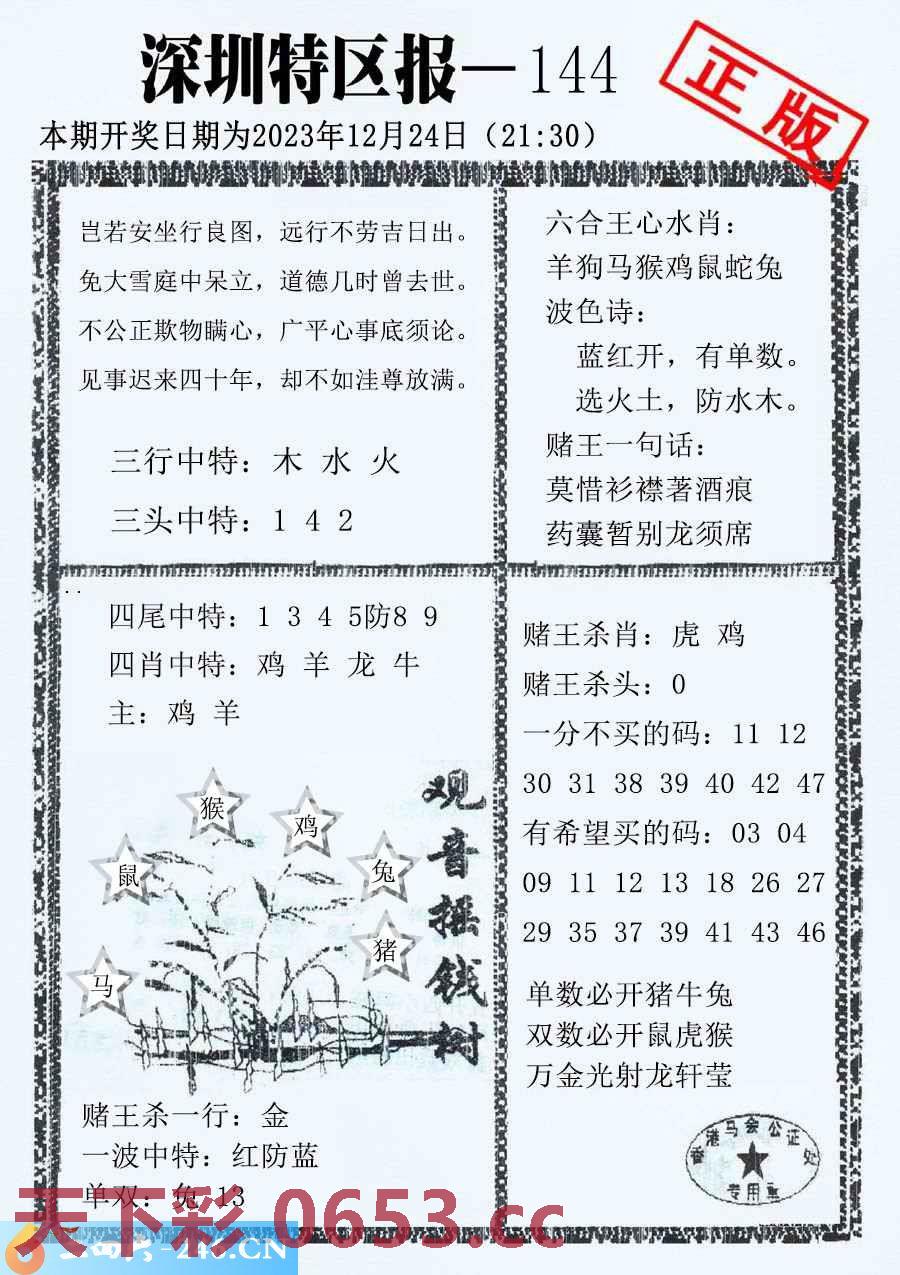 深圳特区报—144
正版
本期开奖日期为2023年12月24日（21:30）
岂若安坐行良图，远行不劳吉日出。
免大雪庭中呆立，道德几时曾去世。
不公正欺物瞒心，广平心事底须论。
见事迟来四十年，却不如洼尊放满。
三行中特：木 水 火
三头中特：1 4 2
六合王心水肖：
羊狗马猴鸡鼠蛇兔
波色诗：
蓝红开，有单数。
选火土，防水木。
赌王一句话：
莫惜衫襟著酒痕
药囊暂别龙须席
四尾中特：1 3 4 5防8 9
四肖中特：鸡 羊 龙 牛
主：鸡 羊
猴
鸡
鼠
兔
猪
马
观音摇钱树
赌王杀一行：金
一波中特：红防蓝
单双：兔 13
赌王杀肖：虎 鸡
赌王杀头：0
一分不买的码：11 12
30 31 38 39 40 42 47
有希望买的码：03 04
09 11 12 13 18 26 27
29 35 37 39 41 43 46
单数必开猪牛兔
双数必开鼠虎猴
万金光射龙轩莹
香港马会公证处
专用章
天下彩 0653.cc
-246.CN